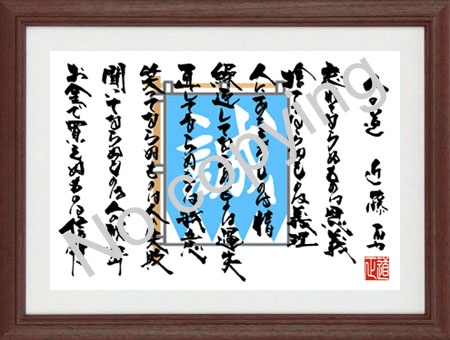 人の道　近藤勇
忘れてならぬものは恩義
捨ててならぬものは義理
人にあたえるものは人情
繰返してならぬものは過失
通してならぬものは我意
笑ってならぬものは人の失敗
聞いてならぬものは人の秘密
お金で買えぬものは信用
誠
No copying